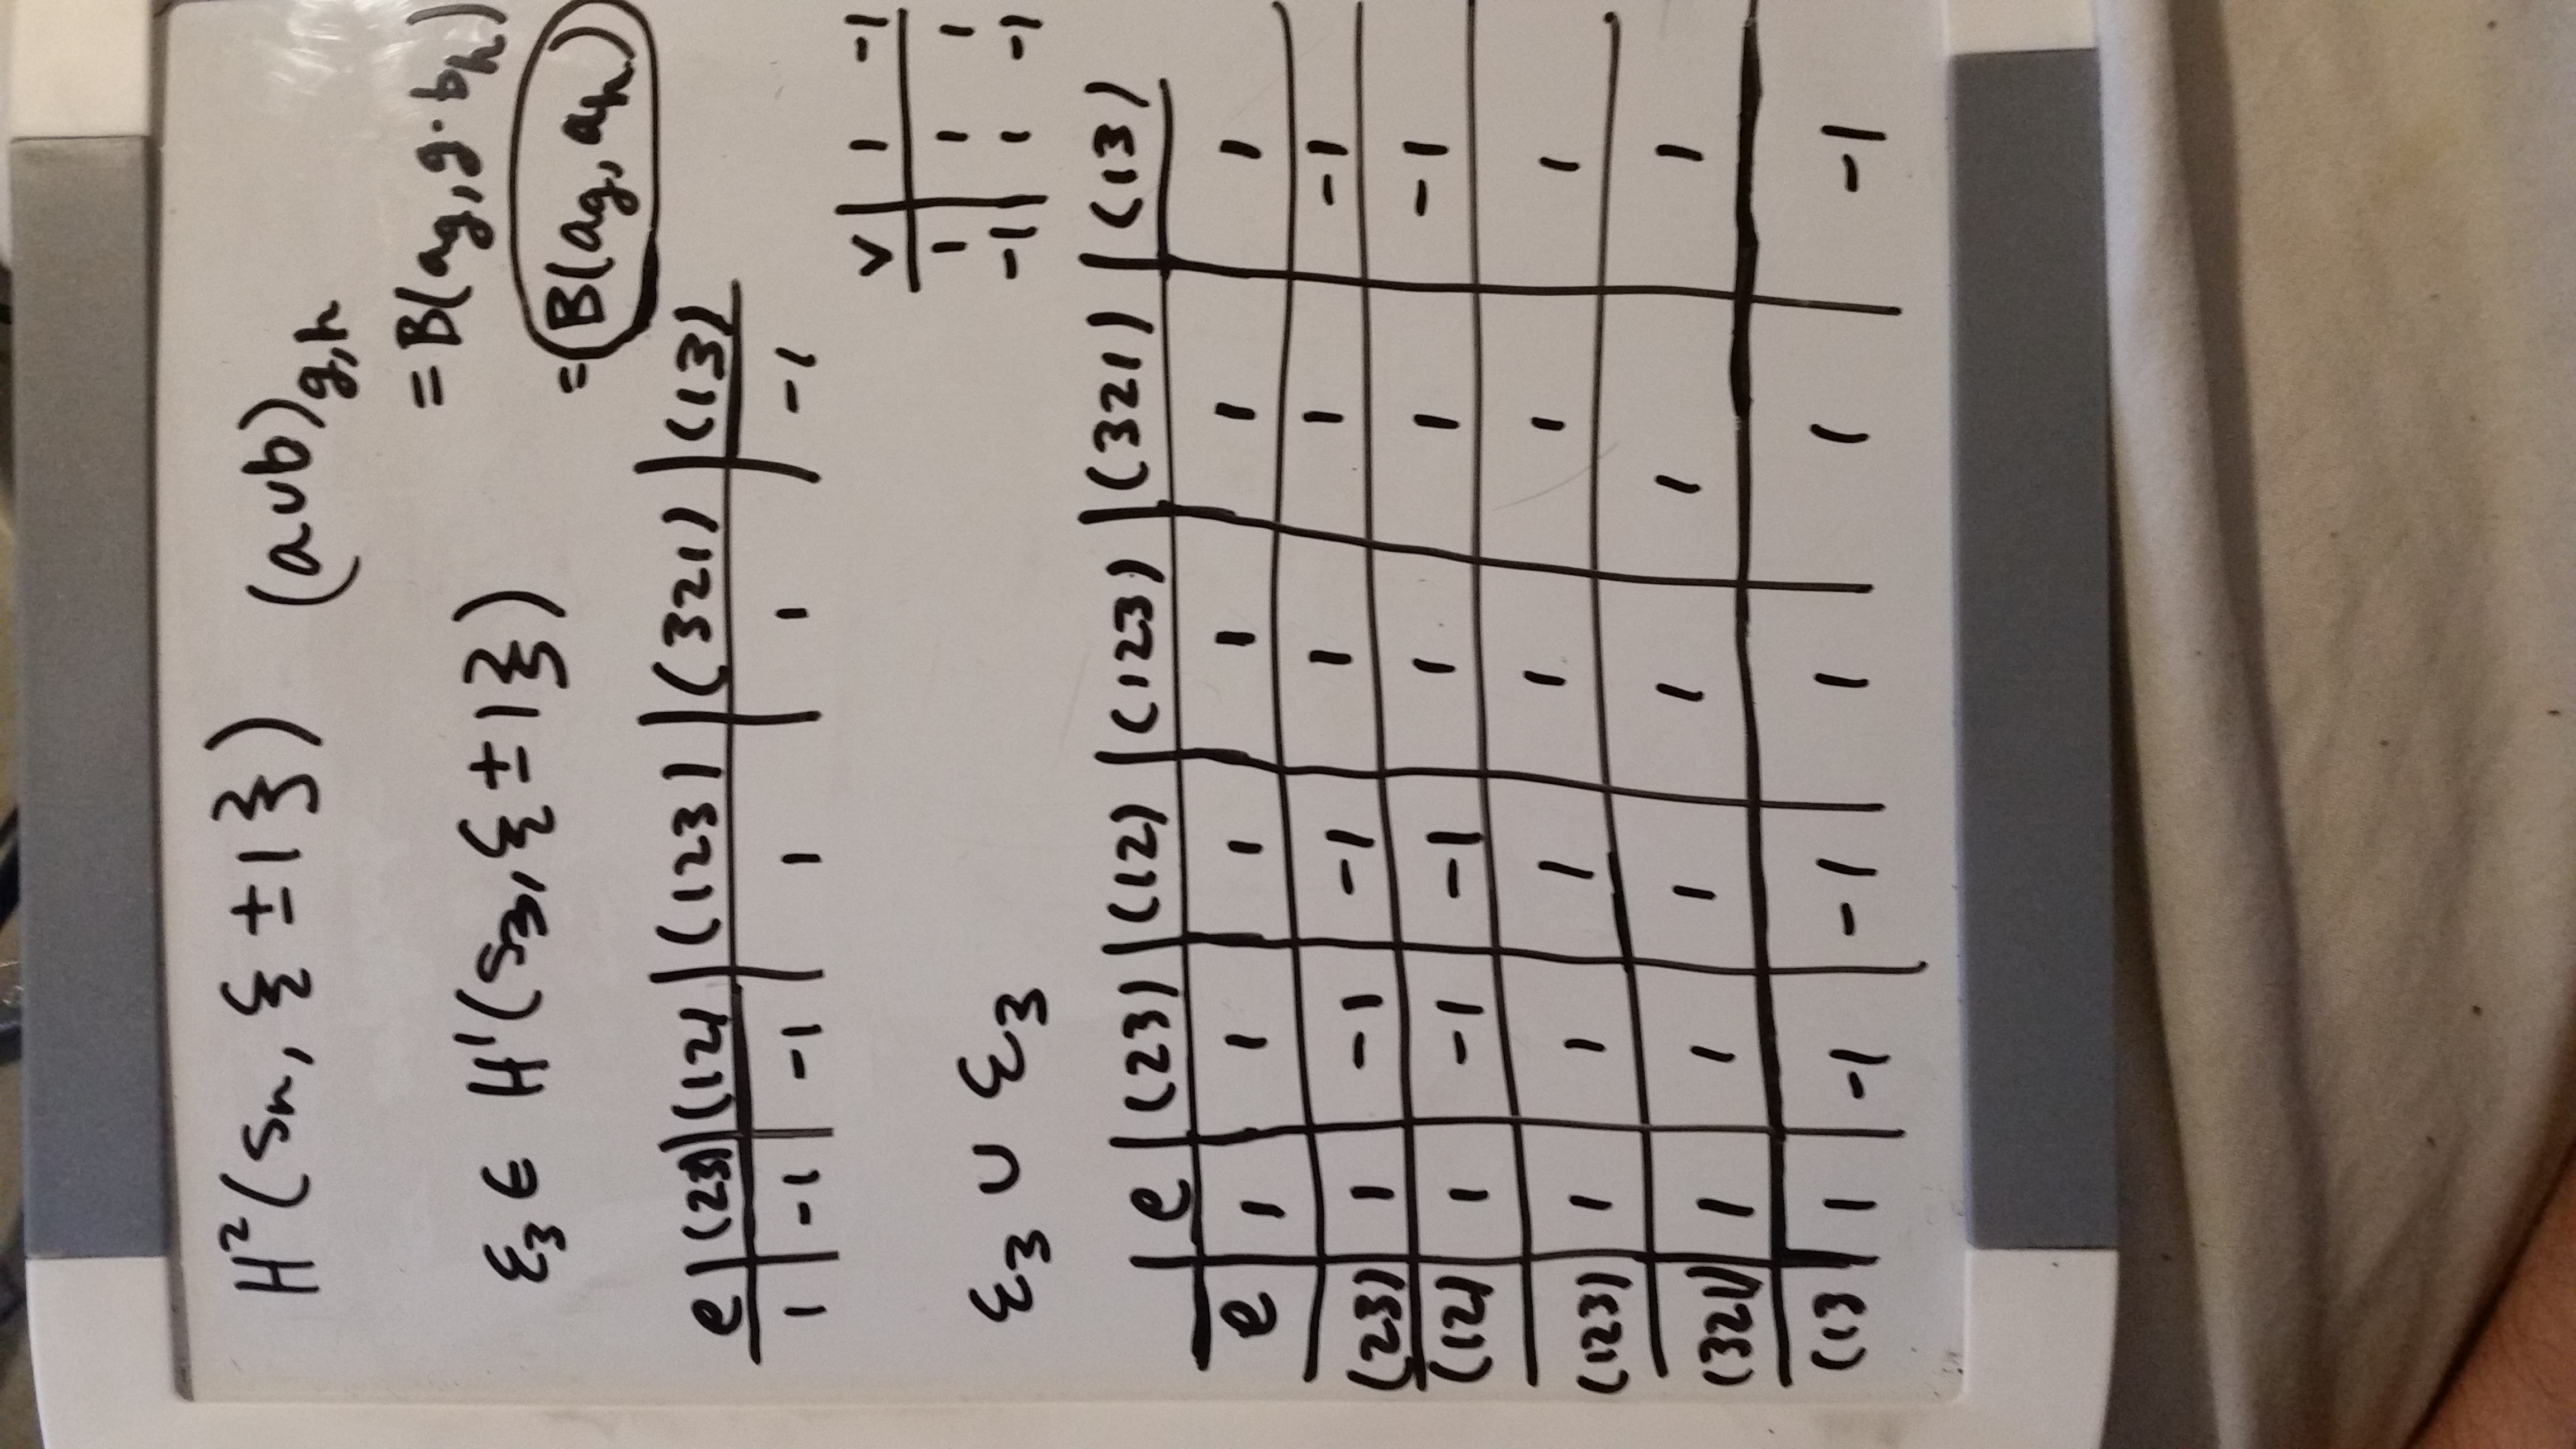 H²(Sn, {±1}) (a∪b)g,h
= B(ag, g·bh)
ε₃ ∈ H¹(S₃, {±1})
= B(ag, ah)
e | (23) | (12) | (123) | (321) | (13)
1 | -1 | -1 | 1 | 1 | -1
∨ | 1 -1
1 | 1 1
-1 | 1 -1
ε₃ ∪ ε₃
| e | (23) | (12) | (123) | (321) | (13)
e | 1 | 1 | 1 | 1 | 1 | 1
(23) | 1 | -1 | -1 | 1 | 1 | -1
(12) | 1 | -1 | -1 | 1 | 1 | -1
(123) | 1 | 1 | 1 | 1 | 1 | 1
(321) | 1 | 1 | 1 | 1 | 1 | 1
(13 | 1 | -1 | -1 | 1 | 1 | -1